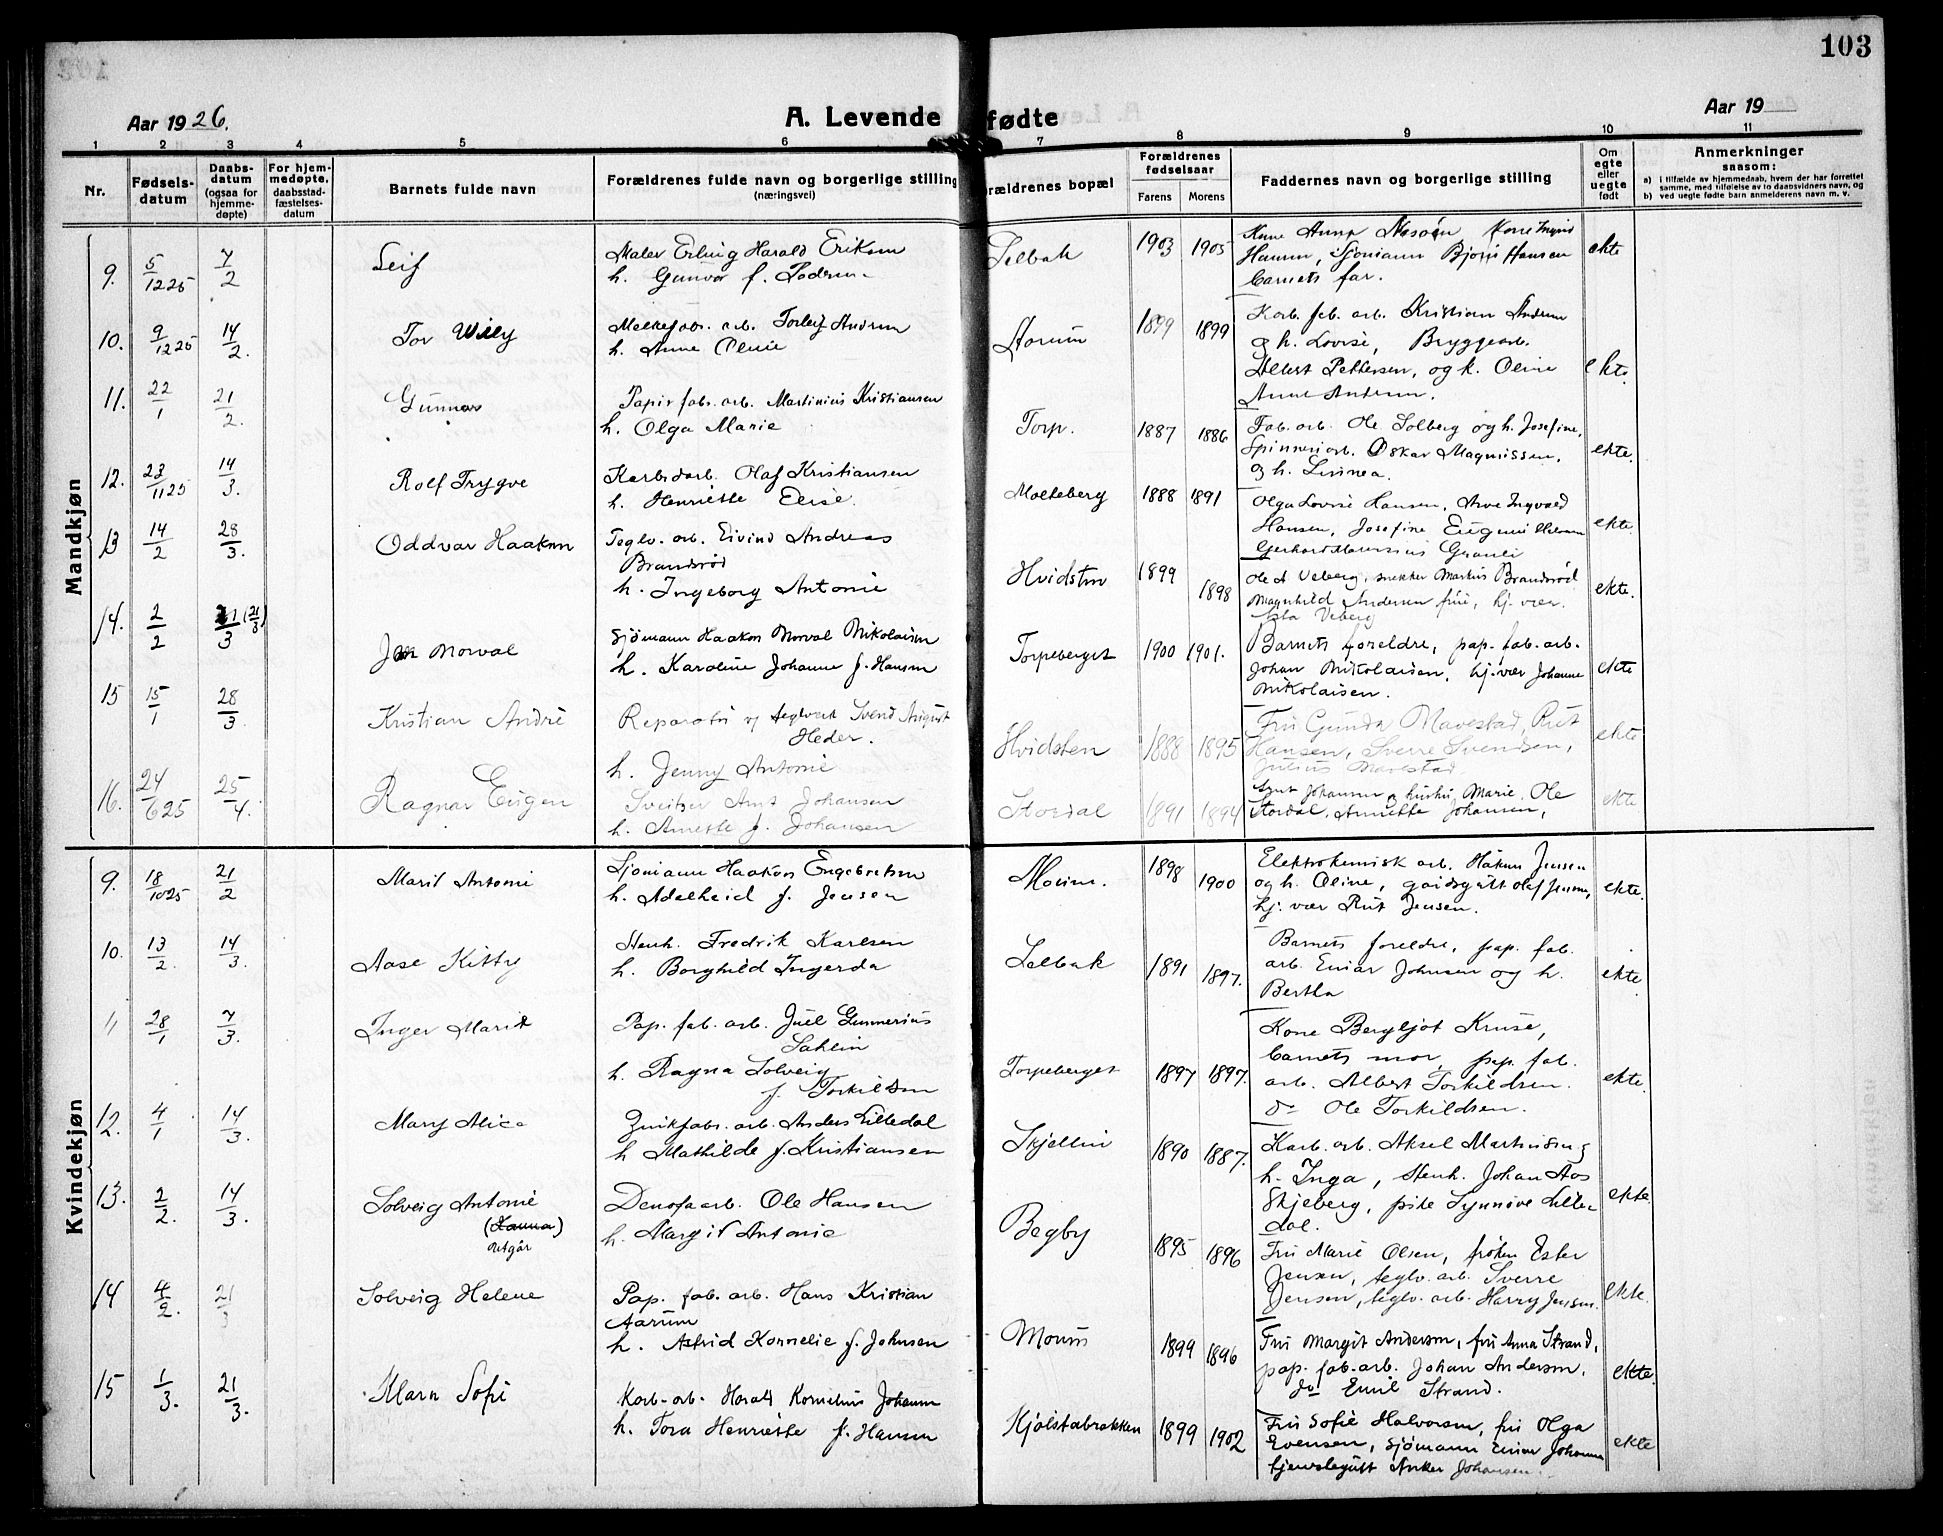 103
Aar 1926.
A. Levende fødte
Aar 19
1 2 3 4 5 6 7 8 9 10 11
Nr.
Fødsels-
datum
Daabs-
datum
(ogsaa for
hjemme-
døpte)
For hjem-
medøpte,
daabsstad-
fæstelses-
datum
Barnets fulde navn
Forældrenes fulde navn og borgerlige stilling
(næringsvei)
rældrenes bopæl
Forældrenes
fødselsaar
Farens Morens
Faddernes navn og borgerlige stilling
Om
egte
eller
uegte
født
Anmerkninger
saasom:
a) i tilfælde av hjemmedaab, hvem der har forrettet
samme, med tilføielse av to daabsvidners navn, og
b) ved uegte fødte barn anmelderens navn m. v.
Mandkjøn
9. 5/12 25 7/2 Leif
Maler Erling Harald Eriksen
h. Gunvor f.
Selbak 1903 1905
Kone Anna Kone Ingrid
Hansen, Sjømann Bjørn Hansen
barnets far.
ekte
10. 9/12 25 14/2. Tor Willy
Melkefabr. arb. Torleif Andersen
h. Anne Oline
1899 1899
Karb. fab. arb. Kristian Andersen
og h. Lovise, Bryggearb.
Albert Pettersen, og k. Oline
Anne Andersen.
ekte.
11. 22/1 21/2. Gunnar
Papir fabr. arb. Martinius Kristiansen
h. Olga Marie
Torp. 1887 1886
Fab. arb. Ole Solberg og h. Josefine,
Spinneriarb. Oskar Magnussen,
og h. Linnea.
ekte.
12. 23/11 25 14/3. Rolf Trygve
Karbidarb. Olaf Kristiansen
h. Henriette Elise.
Molteberg 1888 1891
Olga Lovise Hansen, Arve Ingvald
Hansen, Josefine Eugenie
Gerhard
ekte.
13 14/2 28/3. Oddvar Haakon
Teglv. arb. Eivind Andreas
Brandsrød
h. Ingeborg Antonie
Hvidsten 1899 1898
Ole A Veberg, snekker Markus Brandsrød
Magnhild Andersen frue, hj. vær.
Asta Veberg
ekte.
14. 2/2 21/3 (21/3) Jan Norval
Sjømann Haakon Norval Nikolaisen
h. Karoline Johanne f. Hansen
Torpeberget 1900 1901.
Barnets foreldre, pap. fab. arb.
Johan Nikolaisen, hj. vær Johanne
Nikolaisen.
ekte
15 15/1 28/3 Kristian André
Reparatør v/ teglverk Svend August
Heder.
h. Jenny Antonie
Hvidsten 1888 1895
Fru Gunda Mavestad, Rut
Hansen, Sverre Svendsen,
Julius Mavestad
ekte
16. 24/6 25 25/4. Ragnar Eugen
Sveitser Arnt Johansen
h. Annette f. Johansen
Stordal 1891 1894
Arnt Johansen og hustru Marie, Ole
Stordal, Annette Johansen,
ekte
Kvindekjøn
9. 18/10 25 21/2 Marit Antonie
Sjømann Haakon Engebretsen
h. Adelheid f. Jensen
Moum. 1898 1900
Elektrokemisk arb. Håkon Jensen
og h. Oline, gårdsgutt Olaf Jensen,
hj. vær Rut Jensen.
ekte.
10. 13/2. 14/3. Aase Kitty
Stenh. Fredrik Karlsen
h. Borghild Ingerda
Selbak 1891 1897.
Barnets foreldre, pap. fab.
arb. Einar Johnsen og h.
Bertha
ekte
11 28/1 7/3. Inger Marit
Pap. fab. arb. Juel Gunnerius
Sahlin
h. Ragna Solveig
f. Torkildsen
Torpeberget 1897 1897.
Kone Bergljot Kruse,
barnets mor, pap. fab.
arb. Albert Torkildsen.
do Ole Torkildsen.
ekte.
12. 4/1 14/3. Mary Alice
Zinkfabr. arb. Anders Lilledal
h Mathilde f. Kristiansen
Skjellin 1890 1887.
Karb. arb. Aksel Martinsen og
h. Inga, Stenh. Johan Aos
Skjeberg, pike Synnøve Lille-
dal.
ekte.
13. 2/2. 14/3. Solveig Antonie
(Hanna)
utgår
Denofaarb. Ole Hansen
h. Margit Antonie
Begby 1895 1896
Fru Marie Olsen, frøken Ester
Jensen, teglv. arb. Sverre
Jensen, teglv. arb. Harry Jensen.
ekte.
14 4/2. 21/3 Solveig Helene
Pap. fab. arb. Hans Kristian
Aarum
h. Astrid Kornelie f. Johnsen
Moum 1899 1896
Fru Margit Andersen, fru Anna Strand,
pap. fab. arb. Johan Andersen,
do Emil Strand.
ekte.
15 1/3. 21/3. Karn Sofie
Karb-arb. Harald Kornelius Johansen
h. Tora Henriette f. Hansen
Kjølstabrakken 1899 1902
Fru Sofie Halvorsen, fru Olga
Evensen, sjømann Einar Johansen
hjemslegutt Anker Johansen.
ekte